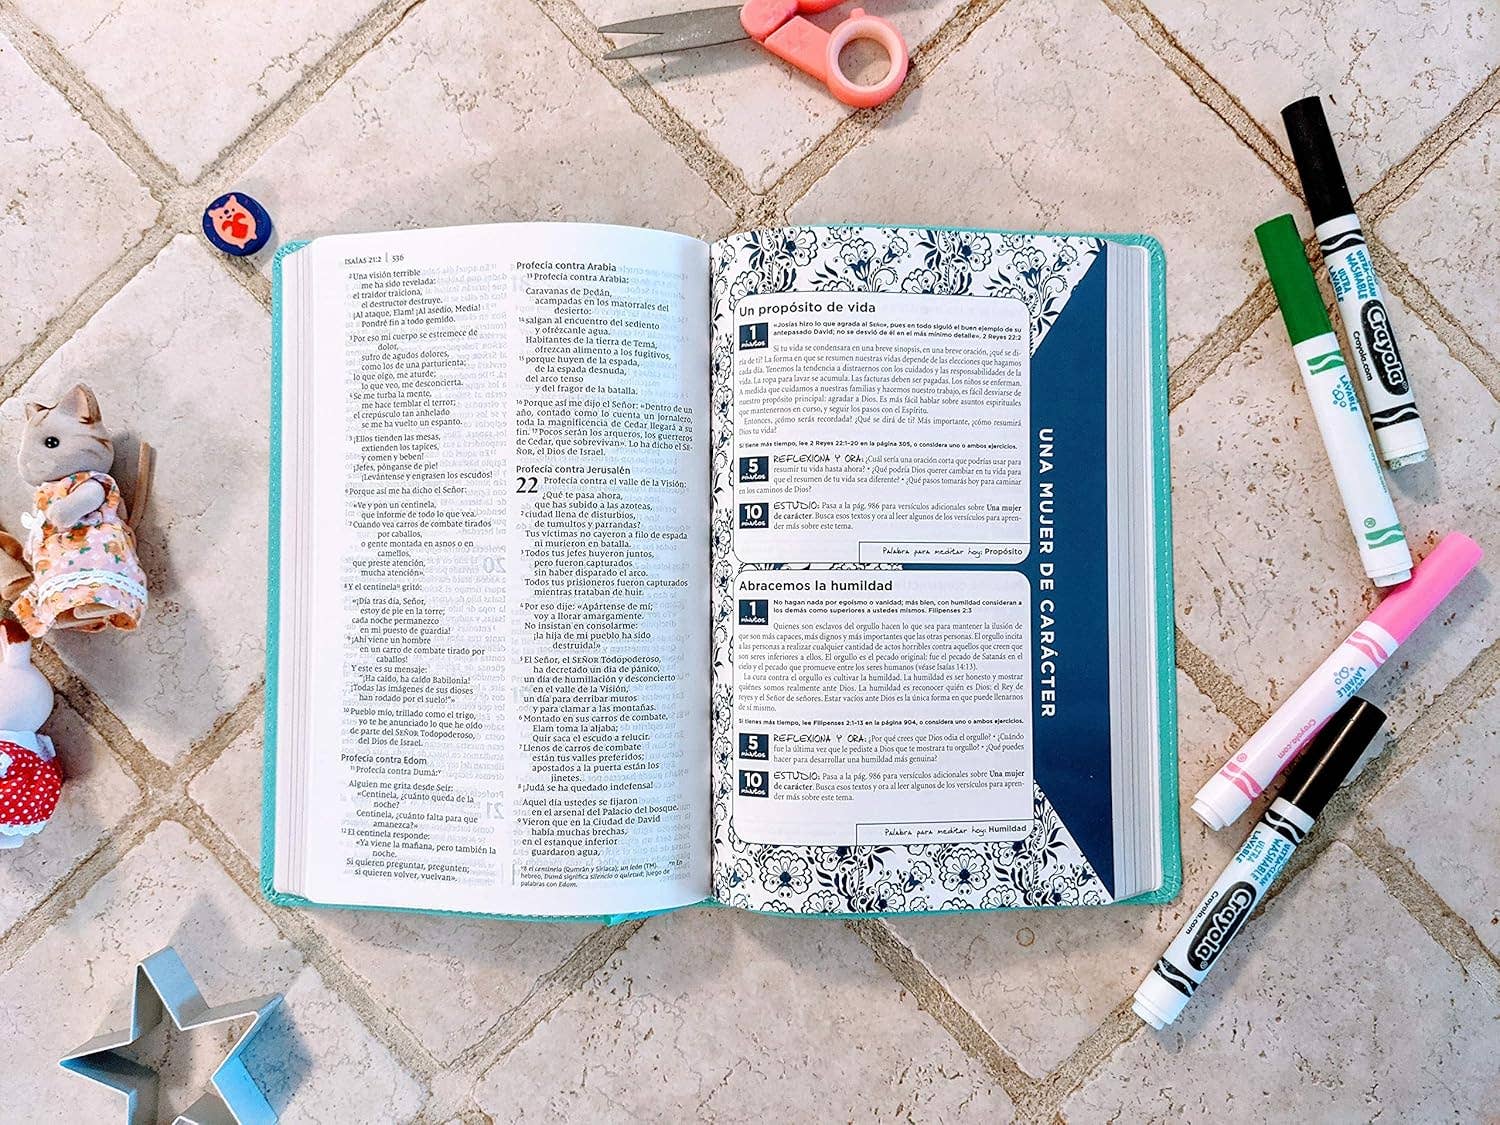 ISAÍAS 21:2 | 536
2 Una visión terrible
me ha sido revelada:
el traidor traiciona,
el destructor destruye.
¡Al ataque, Elam! ¡Al asedio, Media!
Pondré fin a todo gemido.
3 Por eso mi cuerpo se estremece de
dolor,
sufro de agudos dolores,
como los de una parturienta;
lo que oigo, me aturde;
lo que veo, me desconcierta.
4 Se me turba la mente,
me hace temblar el terror;
el crepúsculo tan anhelado
se me ha vuelto un espanto.
5 ¡Ellos tienden las mesas,
extienden los tapices,
y comen y beben!
¡Jefes, pónganse de pie!
¡Levántense y engrasen los escudos!
6 Porque así me ha dicho el Señor:
«Ve y pon un centinela,
que informe de todo lo que vea.
7 Cuando vea carros de combate tirados
por caballos,
o gente montada en asnos o en
camellos,
que preste atención,
mucha atención».
8 Y el centinela gritó:
«¡Día tras día, Señor,
estoy de pie en la torre;
cada noche permanezco
en mi puesto de guardia!
9 ¡Ahí viene un hombre
en un carro de combate tirado por
caballos!
Y este es su mensaje:
“¡Ha caído, ha caído Babilonia!
¡Todas las imágenes de sus dioses
han rodado por el suelo!”»
10 Pueblo mío, trillado como el trigo,
yo te he anunciado lo que he oído
de parte del SEÑOR Todopoderoso,
del Dios de Israel.
Profecía contra Edom
11 Profecía contra Dumá:
Alguien me grita desde Seír:
«Centinela, ¿cuánto queda de la
noche?
Centinela, ¿cuánto falta para que
amanezca?»
12 El centinela responde:
«Ya viene la mañana, pero también la
noche.
Si quieren preguntar, pregunten;
si quieren volver, vuelvan».
Profecía contra Arabia
13 Profecía contra Arabia:
Caravanas de Dedán,
acampadas en los matorrales del
desierto:
14 salgan al encuentro del sediento
y ofrézcanle agua.
Habitantes de la tierra de Temá,
ofrezcan alimento a los fugitivos,
15 porque huyen de la espada,
de la espada desnuda,
del arco tenso
y del fragor de la batalla.
16 Porque así me dijo el Señor: «Dentro de un
año, contado como lo cuenta un jornalero,
toda la magnificencia de Cedar llegará a su
fin. 17 Pocos serán los arqueros, los guerreros
de Cedar, que sobrevivan». Lo ha dicho el SE-
ÑOR, el Dios de Israel.
Profecía contra Jerusalén
22 Profecía contra el valle de la Visión:
¿Qué te pasa ahora,
que has subido a las azoteas,
2 ciudad llena de disturbios,
de tumultos y parrandas?
Tus víctimas no cayeron a filo de espada
ni murieron en batalla.
3 Todos tus jefes huyeron juntos,
pero fueron capturados
sin haber disparado el arco.
Todos tus prisioneros fueron capturados
mientras trataban de huir.
4 Por eso dije: «Apártense de mí;
voy a llorar amargamente.
No insistan en consolarme:
¡la hija de mi pueblo ha sido
destruida!»
5 El Señor, el SEÑOR Todopoderoso,
ha decretado un día de pánico,
un día de humillación y desconcierto
en el valle de la Visión,
un día para derribar muros
y para clamar a las montañas.
6 Montado en sus carros de combate,
Elam toma la aljaba;
Quir saca el escudo a relucir.
7 Llenos de carros de combate
están tus valles preferidos;
apostados a la puerta están los
jinetes.
8 ¡Judá se ha quedado indefensa!
Aquel día ustedes se fijaron
en el arsenal del Palacio del bosque.
9 Vieron que en la Ciudad de David
había muchas brechas,
en el estanque inferior
guardaron agua,
8 el centinela (Qumrán y Siríaca); un león (TM). 11 En
hebreo, Dumá significa silencio o quietud; juego de
palabras con Edom.
Un propósito de vida
1 minutos «Josías hizo lo que agrada al SEÑOR, pues en todo siguió el buen ejemplo de su
antepasado David; no se desvió de él en el más mínimo detalle». 2 Reyes 22:2
Si tu vida se condensara en una breve sinopsis, en una breve oración, ¿qué se di-
ría de ti? La forma en que se resumen nuestras vidas depende de las elecciones que hagamos
cada día. Tenemos la tendencia a distraernos con los cuidados y las responsabilidades de la
vida. La ropa para lavar se acumula. Las facturas deben ser pagadas. Los niños se enferman.
A medida que cuidamos a nuestras familias y hacemos nuestro trabajo, es fácil desviarse de
nuestro propósito principal: agradar a Dios. Es más fácil hablar sobre asuntos espirituales
que mantenernos en curso, y seguir los pasos con el Espíritu.
Entonces, ¿cómo serás recordada? ¿Qué se dirá de ti? Más importante, ¿cómo resumirá
Dios tu vida?
Si tienes más tiempo, lee 2 Reyes 22:1–20 en la página 305, o considera uno o ambos ejercicios.
5 minutos REFLEXIONA Y ORA: ¿Cuál sería una oración corta que podrías usar para
resumir tu vida hasta ahora? • ¿Qué podría Dios querer cambiar en tu vida para
que el resumen de tu vida sea diferente? • ¿Qué pasos tomarás hoy para caminar
en los caminos de Dios?
10 minutos ESTUDIO: Pasa a la pág. 986 para versículos adicionales sobre Una mujer
de carácter. Busca esos textos y ora al leer algunos de los versículos para apren-
der más sobre este tema.
Palabra para meditar hoy: Propósito
Abracemos la humildad
1 minutos No hagan nada por egoísmo o vanidad; más bien, con humildad consideren a
los demás como superiores a ustedes mismos. Filipenses 2:3
Quienes son esclavos del orgullo hacen lo que sea para mantener la ilusión de
que son más capaces, más dignos y más importantes que las otras personas. El orgullo incita
a las personas a realizar cualquier cantidad de actos horribles contra aquellos que creen que
son seres inferiores a ellos. El orgullo es el pecado original; fue el pecado de Satanás en el
cielo y el pecado que promueve entre los seres humanos (véase Isaías 14:13).
La cura contra el orgullo es cultivar la humildad. La humildad es ser honesto y mostrar
quiénes somos realmente ante Dios. La humildad es reconocer quién es Dios: el Rey de
reyes y el Señor de señores. Estar vacíos ante Dios es la única forma en que puede llenarnos
de sí mismo.
Si tienes más tiempo, lee Filipenses 2:1–13 en la página 904, o considera uno o ambos ejercicios.
5 minutos REFLEXIONA Y ORA: ¿Por qué crees que Dios odia el orgullo? • ¿Cuándo
fue la última vez que le pediste a Dios que te mostrara tu orgullo? • ¿Qué puedes
hacer para desarrollar una humildad más genuina?
10 minutos ESTUDIO: Pasa a la pág. 986 para versículos adicionales sobre Una mujer
de carácter. Busca esos textos y ora al leer algunos de los versículos para apren-
der más sobre este tema.
Palabra para meditar hoy: Humildad
UNA MUJER DE CARÁCTER
ULTRA-CLEAN
WASHABLE
ULTRA
LAVABLE
Crayola
Crayola.com
LAVABLE
LAVABLE
Crayola.com
ULTRA-CLEAN
WASHABLE
ULTRA
LAVABLE
Crayola
Crayola.com